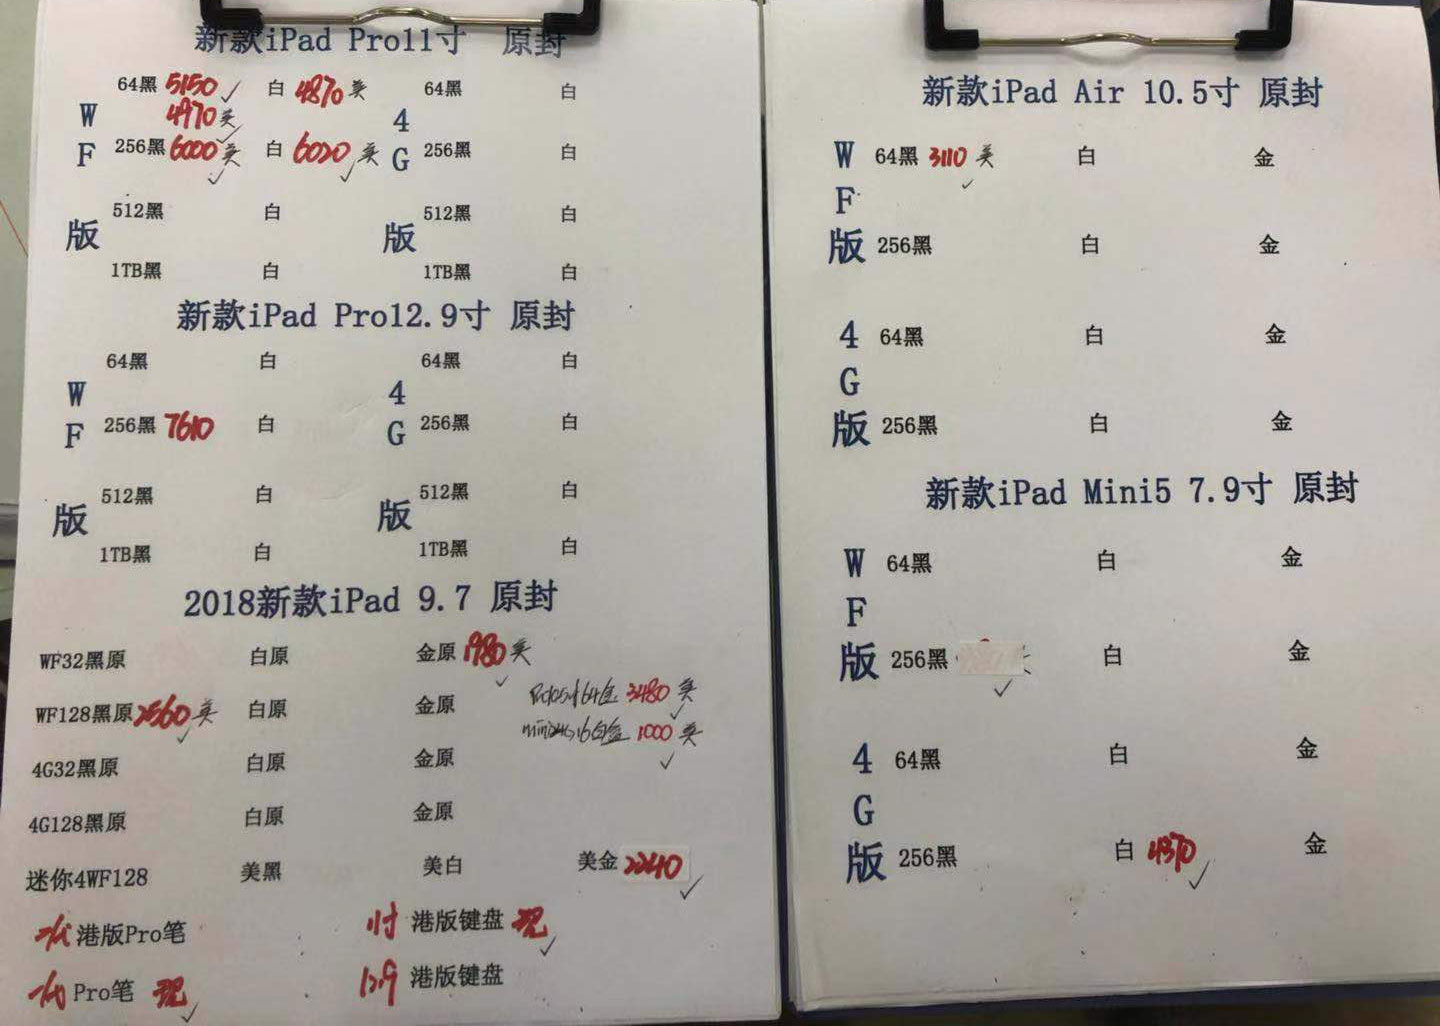 新款iPad Pro11寸 原封
64黑 5150 白 4870 美 64黑 白
W 4970 美 4
F 256黑 6000 美 白 6020 美 G 256黑 白
512黑 白 512黑 白
版 版
1TB黑 白 1TB黑 白
新款iPad Pro12.9寸 原封
64黑 白 64黑 白
W 4
F 256黑 7610 白 G 256黑 白
512黑 白 512黑 白
版 版
1TB黑 白 1TB黑 白
2018新款iPad 9.7 原封
WF32黑原 白原 金原 1980 美
WF128黑原 2560 美 白原 金原 3480 美
1000 美
4G32黑原 白原 金原
4G128黑原 白原 金原
迷你4WF128 美黑 美白 美金 2240
一代 港版Pro笔 11寸 港版键盘 现
一代 Pro笔 现 12.9 港版键盘
新款iPad Air 10.5寸 原封
W 64黑 3110 美 白 金
F
版 256黑 白 金
4 64黑 白 金
G
版 256黑 白 金
新款iPad Mini5 7.9寸 原封
W 64黑 白 金
F
版 256黑 白 金
4 64黑 白 金
G
版 256黑 白 4370 金